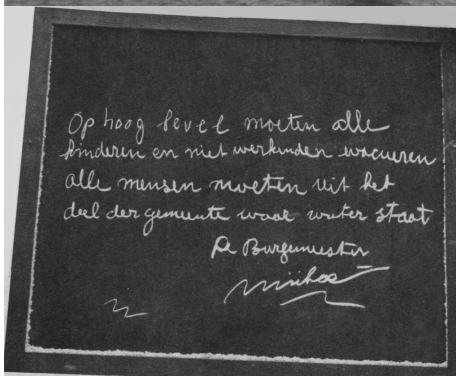 Op hoog bevel moeten alle
kinderen en niet werkenden evacueren
alle mensen moeten uit het
deel der gemeente waar water staat
De Burgemeester